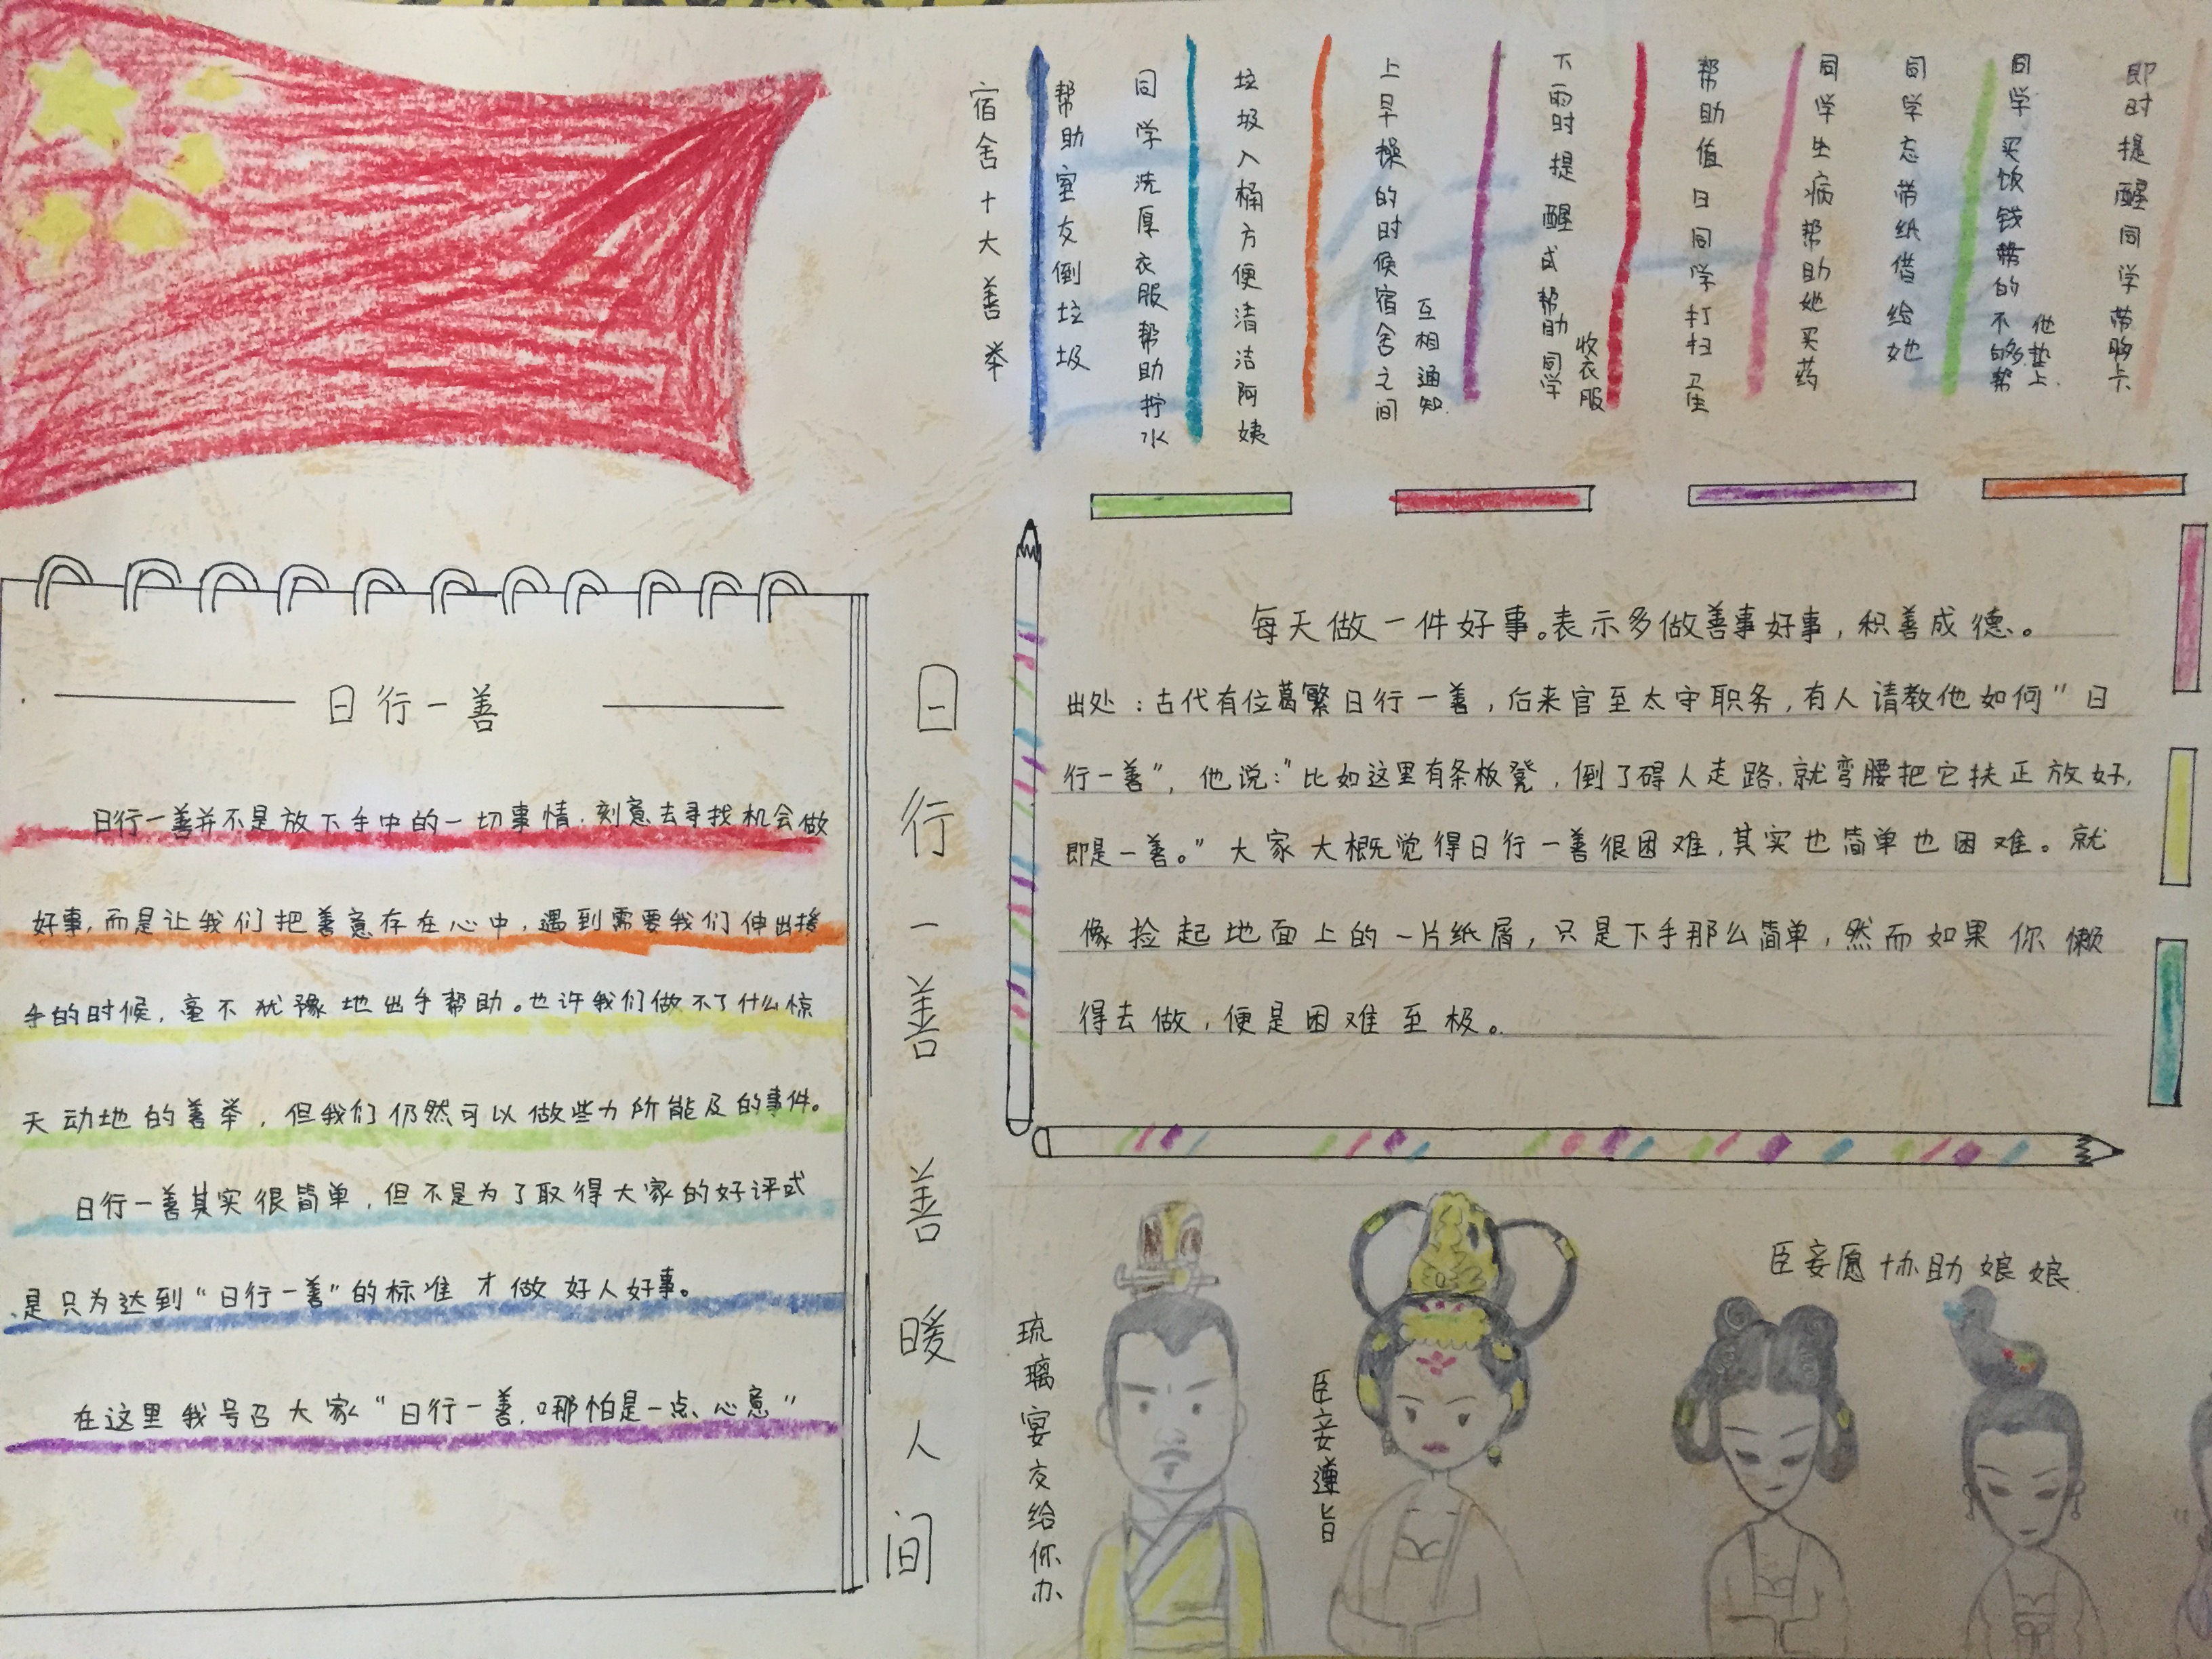 宿舍十大善举
帮助室友倒垃圾
同学洗厚衣服帮助拧水
垃圾入桶方便清洁阿姨
上早操的时候宿舍之间
互相通知.
下雨时提醒或帮助同学
收衣服
帮助值日同学打扫卫生
同学生病帮助她买药
同学忘带纸借给她
同学买饭钱带的不够帮
他垫上.
即时提醒同学带胸卡
日行一善
日行一善并不是放下手中的一切事情,刻意去寻找机会做
好事,而是让我们把善意存在心中,遇到需要我们伸出援
手的时候,毫不犹豫地出手帮助。也许我们做不了什么惊
天动地的善举,但我们仍然可以做些力所能及的事件。
日行一善其实很简单,但不是为了取得大家的好评或
是只为达到“日行一善”的标准 才做好人好事。
在这里我号召大家“日行一善,哪怕是一点心意”
日行一善 善暖人间
每天做一件好事。表示多做善事好事,积善成德。
出处:古代有位葛繁日行一善,后来官至太守职务,有人请教他如何”日
行一善”,他说:“比如这里有条板凳,倒了碍人走路,就弯腰把它扶正放好,
即是一善。”大家大概觉得日行一善很困难,其实也简单也困难。就
像捡起地面上的一片纸屑,只是下手那么简单,然而如果你懒
得去做,便是困难至极。
琉璃宴交给你办
臣妾遵旨
臣妾愿协助娘娘